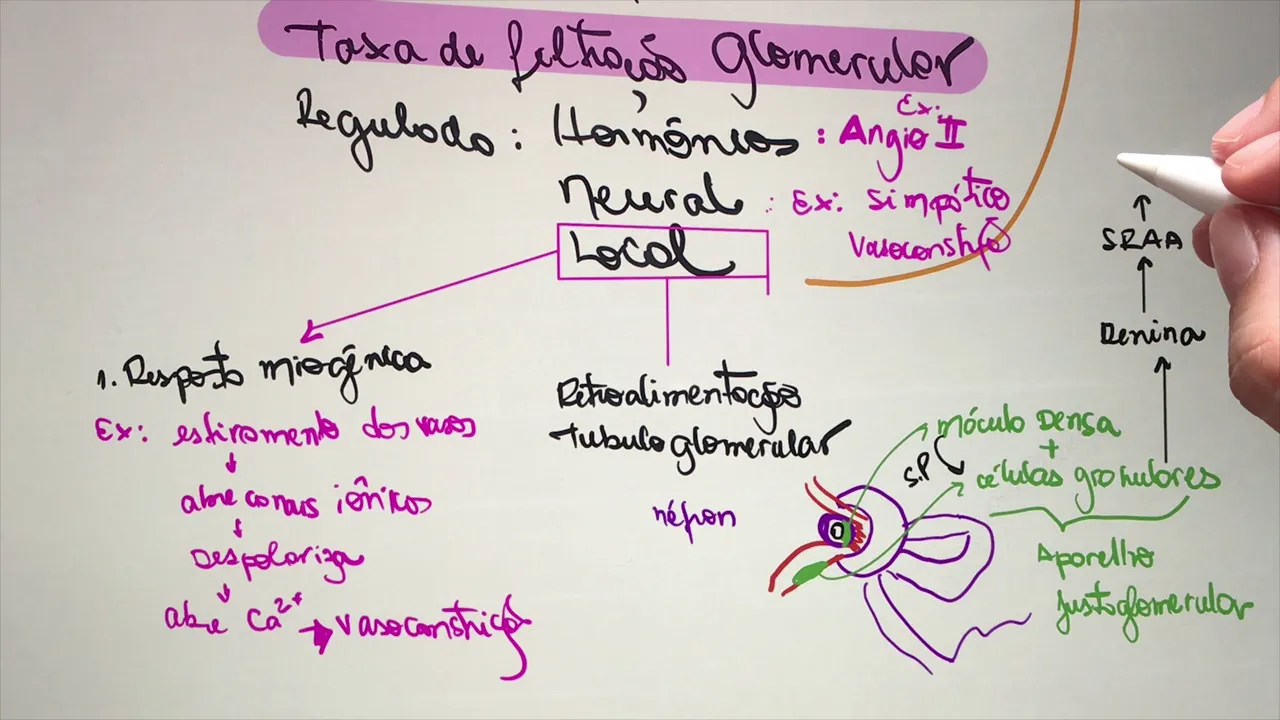 Taxa de filtração glomerular
Regulado: Hormônios : Ex: Angio II
Neural : Ex: Simpático
vasoconstrição
Local
1. Resposta miogênica
Ex: estiramento dos vasos
abre canais iônicos
Despolariza
abre Ca2+ → vasoconstrição
Retroalimentação
tubuloglomerular
néfron
mácula Densa
+
S.P
células granulares
Aparelho
justaglomerular
SRAA
Renina